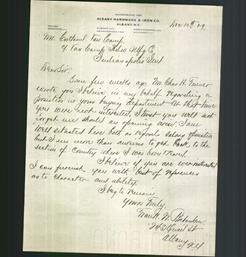 ALBANY HARDWARE & IRON CO.
ALBANY, N.Y.
Mr. Van Camp
% Van Camp
Indianapolis Ind
Dear Sir
Some few weeks ago Mr Chas H. Turner
wrote you I believe in my behalf regarding a
position in your buying department. At that time
you were much interested, I trust you will not
forget me should an opening occur. I am
well situated here both as regards salary & position
but I am more than anxious to get back to the
section of country where I was born & raised.
I believe if you are
I can furnish you with best of references
as to character and ability.
I beg to remain
Yours Truly
Frank W.
St
Albany N.Y.